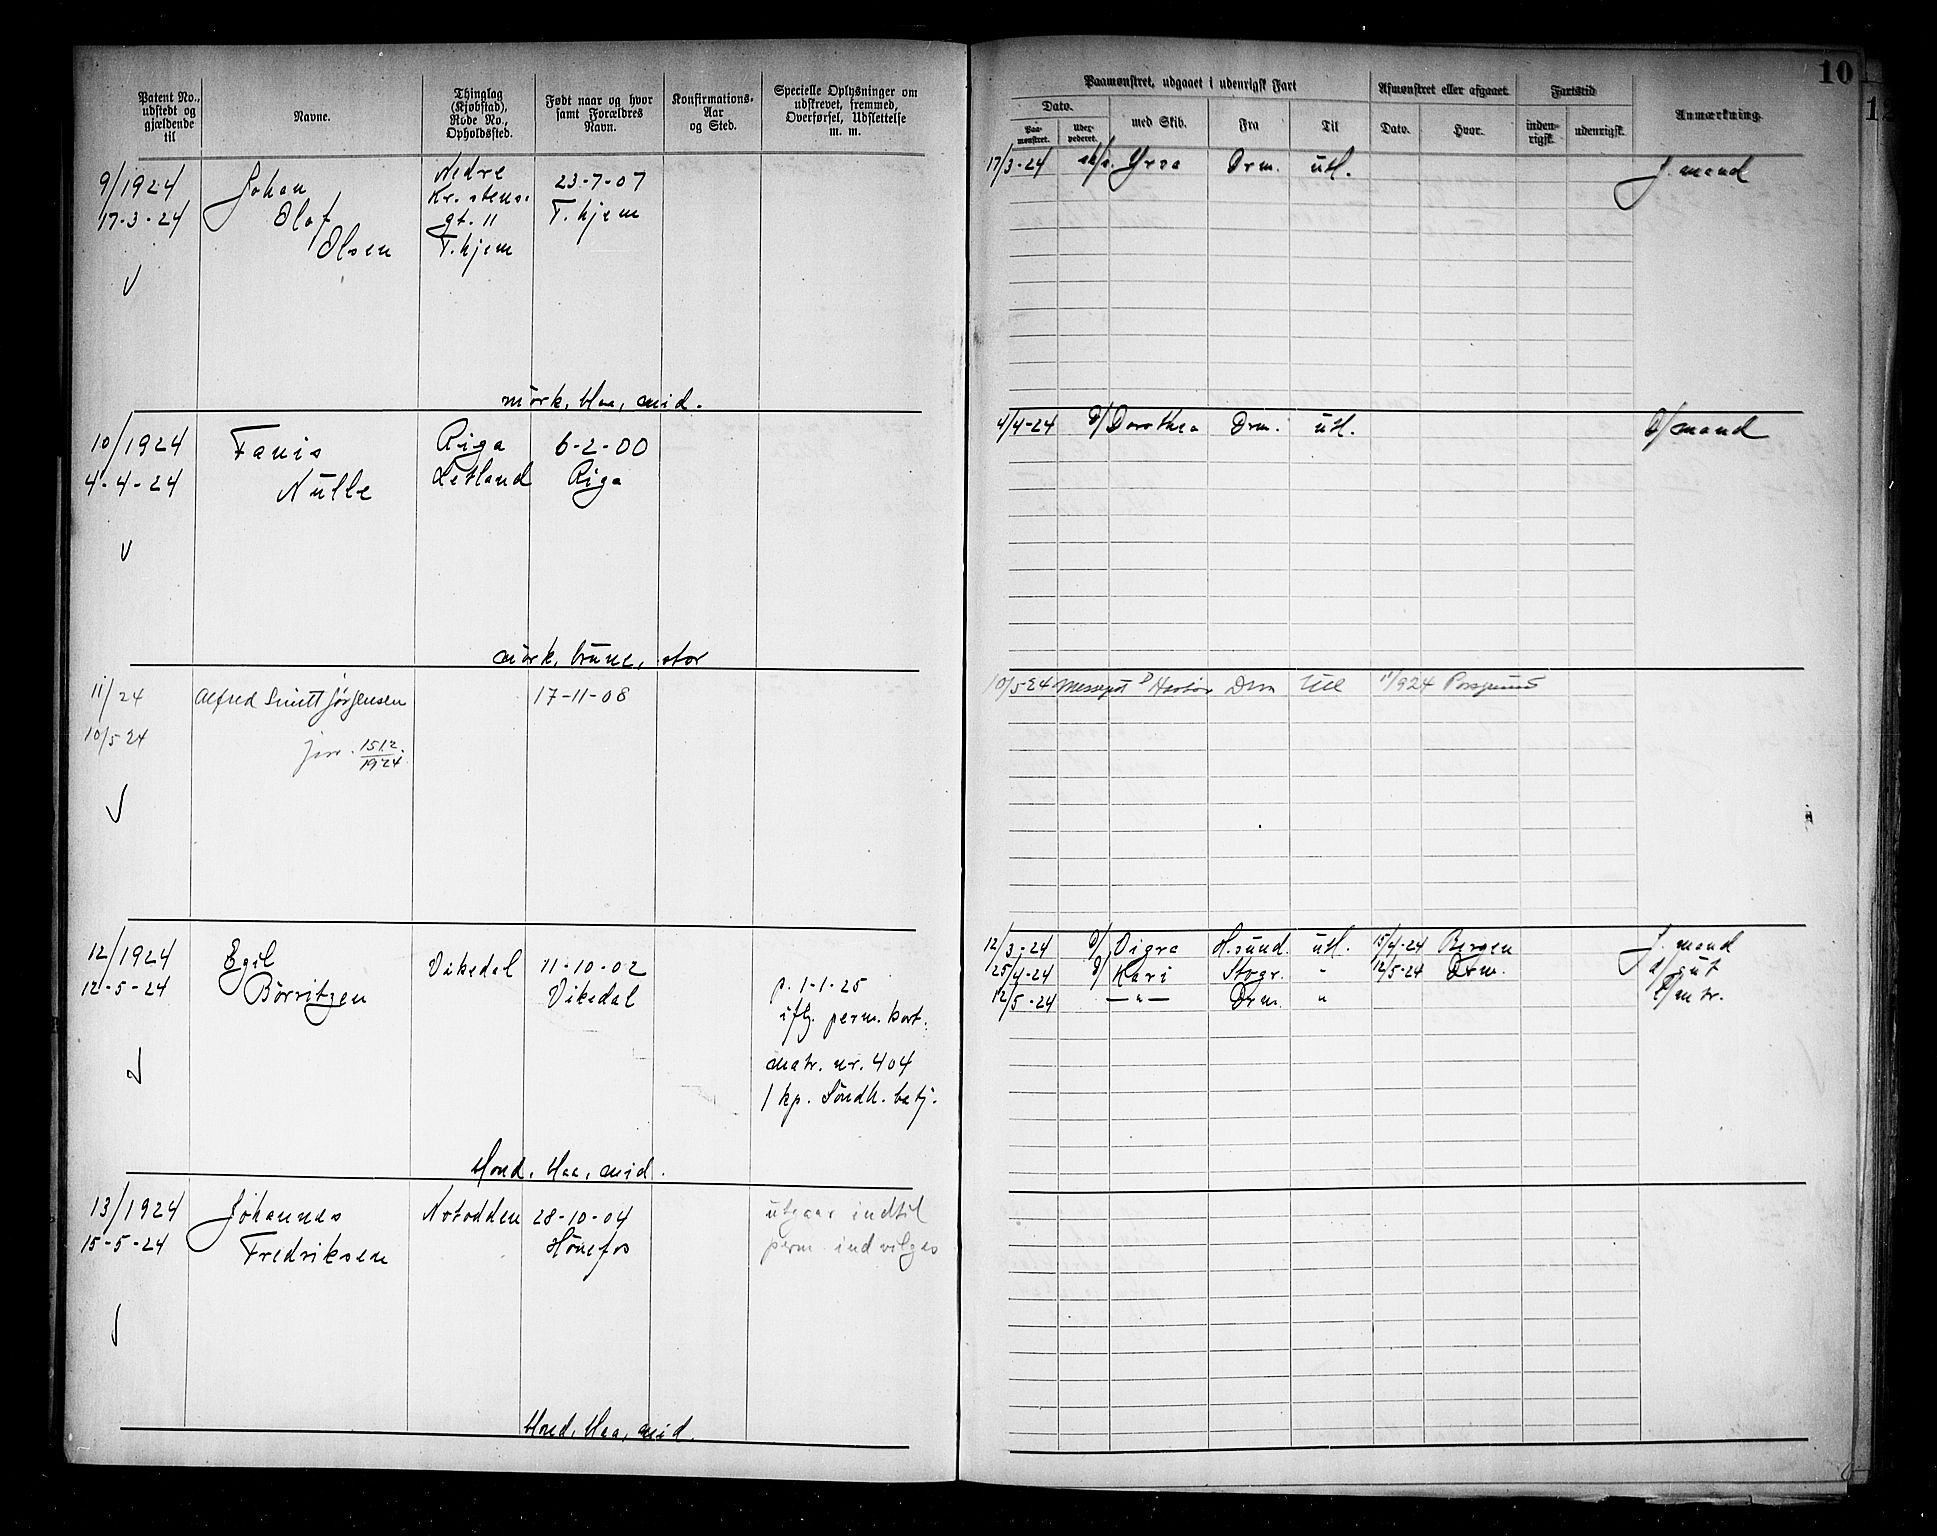 Patent No., udstedt og gjældende til
Navne.
Thinglag (Kjøbstad), Rode No., Opholdssted.
Født naar og hvor samt Forældres Navn.
Konfirmations-Aar og Sted.
Specielle Oplysninger om udskrevet, fremmed, Overførsel, Udslettelse m. m.
9/1924
17-3-24
Johan
Olaf
Olsen
Nedre
Kr. stens.
gt. 11
T.hjem
23-7-07
T.hjem
mörk, blaa, mid.
10/1924
4-4-24
Fanis
Nulle
Riga
Letland
6-2-00
Riga
mörk, brune, stor
11/24
10/5 24
Alfred Smitt Jørgensen
jnr. 1512/1924
17-11-08
12/1924
12-5-24
Egil
Börritzen
Vikedal
11-10-02
Vikedal
p. 1-1-25
iflg. perm. kort.
matr. nr. 404
1 kp. Söndh. batj.
blond, blaa, mid.
13/1924
15-5-24
Johannes
Fredriksen
Notodden
28-10-04
Hönefos
utgaar indtil
perm. indvilges
blond, blaa, mid.
10
12
Paamønstret, udgaaet i udenrigsk Fart
Afmønstret eller afgaaet.
Fartstid
Anmærkning.
Dato.
Paa-mønstret.
med Skib.
Fra
Til
Dato.
Hvor.
inden-rigsk.
udenrigsk.
17/3-24 Yrsa Drm. utl. J. mand
4/4-24 D/ Dorothea Drm. utl. D/mand
10/5 24 Messegut D Drm Utl 11/9 24 Porsgrund
12/3-24 D/ Vigra H.sund. utl. 15/4-24 Bergen J. mand
25/4-24 D/ Kari Stvgr. " 12/5-24 Drm. d/gut
12/5-24 —"— Drm. " l/mtr.